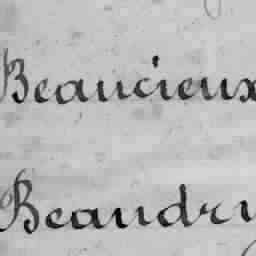 Beaucieux
Beaudry